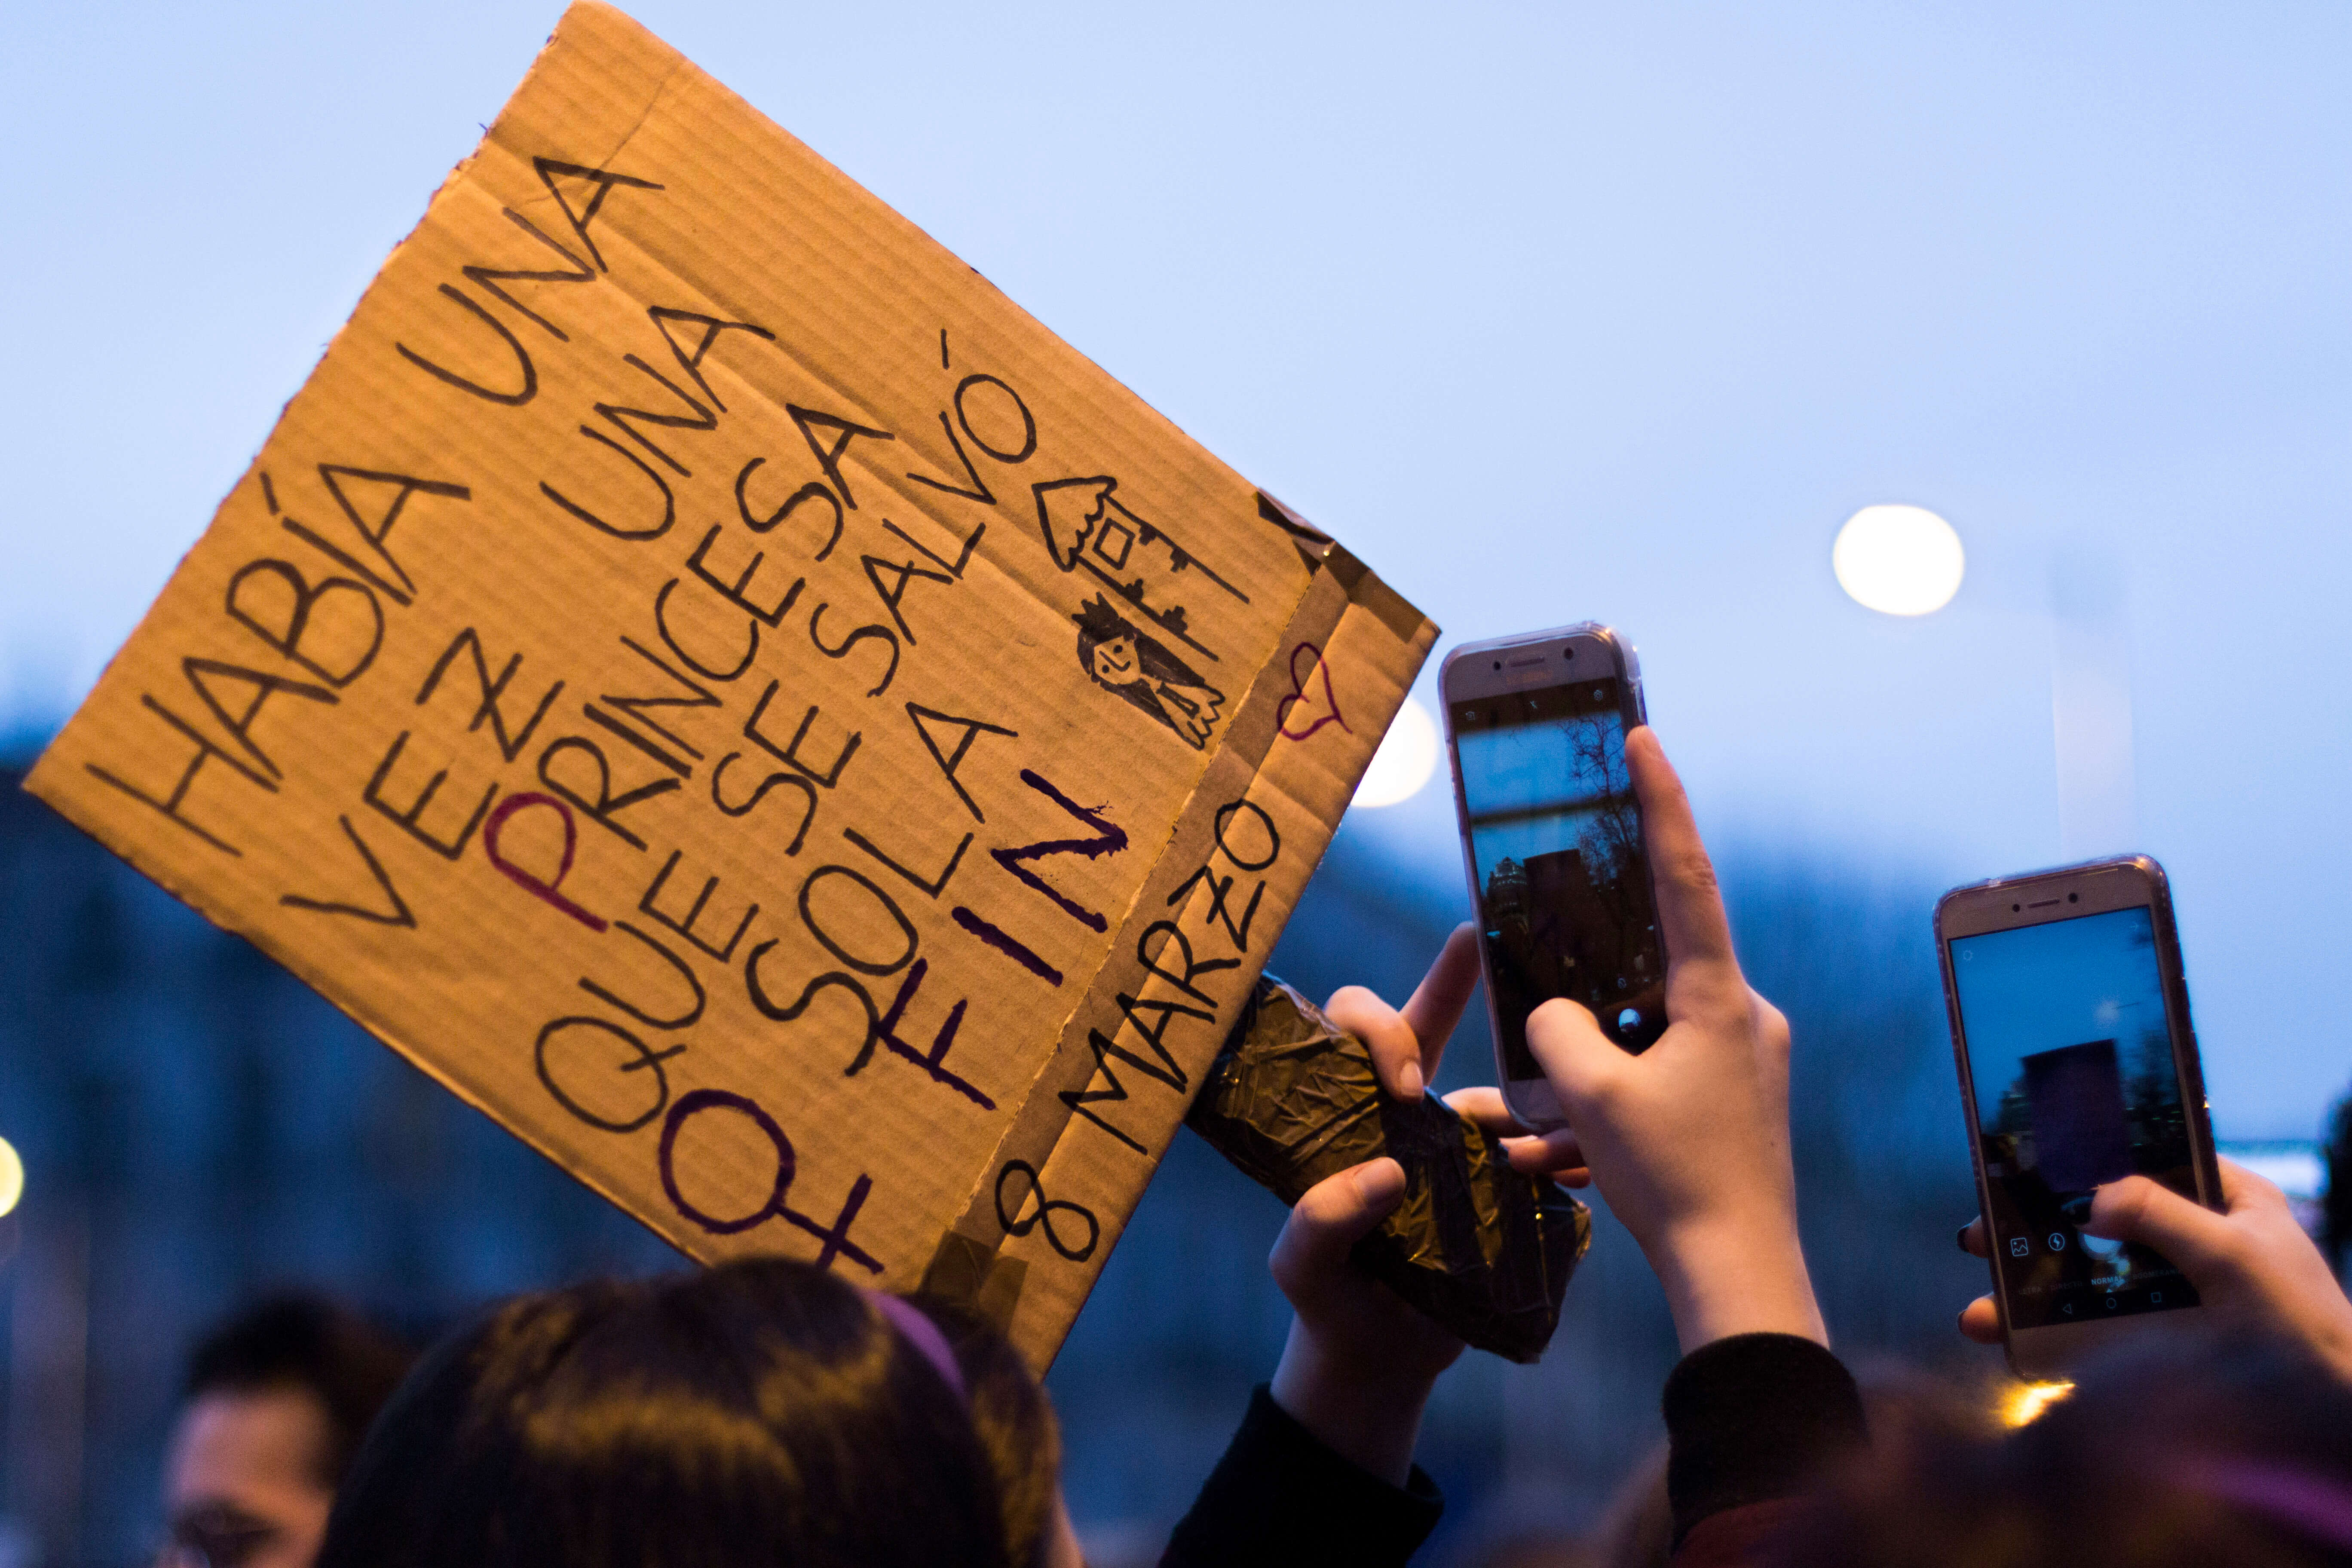 HABÍA UNA
VEZ UNA
PRINCESA
QUE SE SALVÓ
SOLA
FIN
8 MARZO
NORMAL